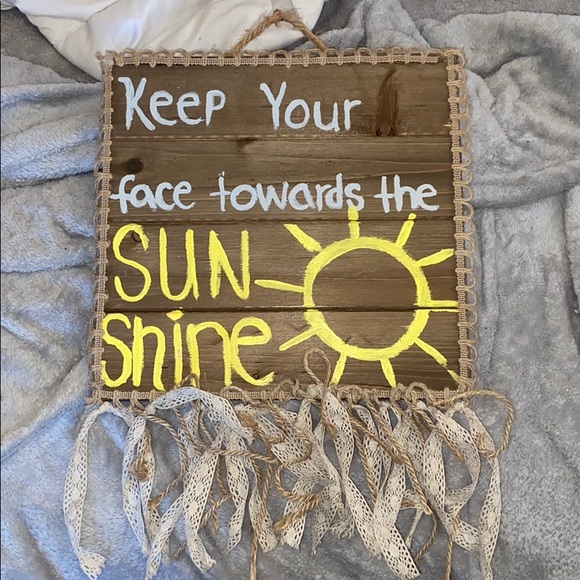 Keep Your
face towards the
SUN
shine